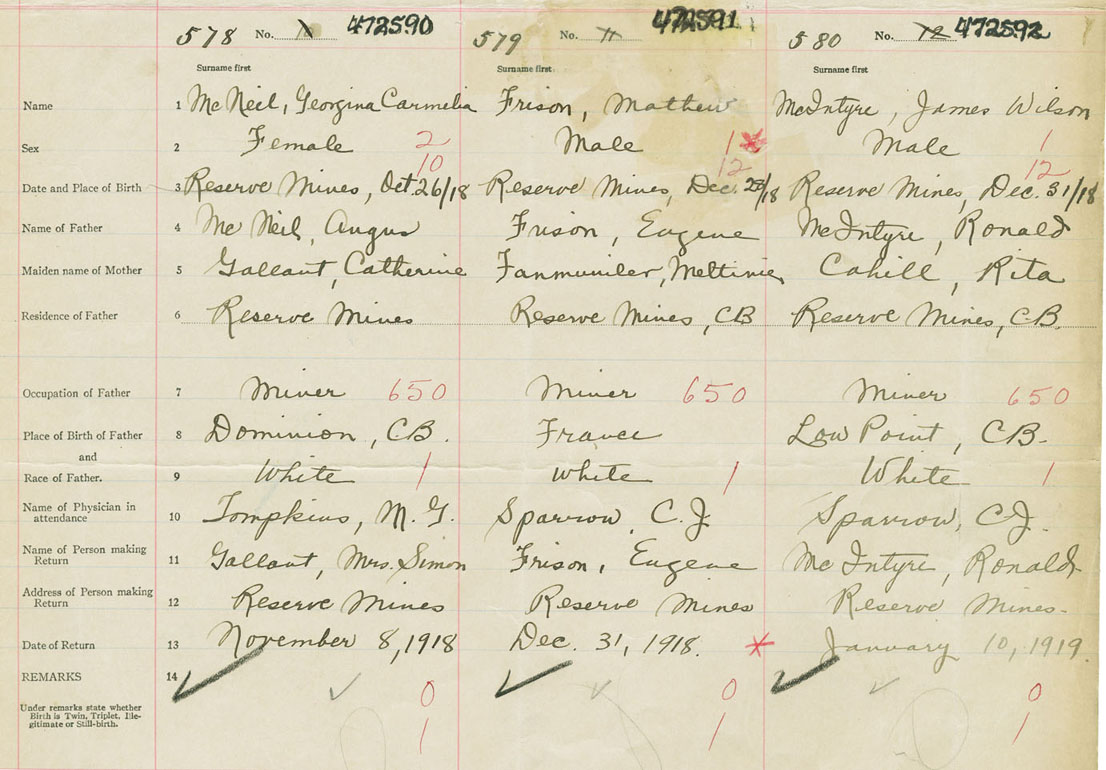 578 No. 10 472590 579 No. 11 472591 580 No. 12 472592
Surname first Surname first Surname first
Name 1 McNeil, Georgina Carmelia Frison, Mathew McIntyre, James Wilson
Sex 2 Female 2 Male 1 * Male 1
10 12 12
Date and Place of Birth 3 Reserve Mines, Oct. 26/18 Reserve Mines, Dec. /18 Reserve Mines, Dec. 31/18
Name of Father 4 McNeil, Angus Frison, Eugene McIntyre, Ronald
Maiden name of Mother 5 Gallant, Catherine Cahill, Rita
Residence of Father 6 Reserve Mines Reserve Mines, CB Reserve Mines, C.B.
Occupation of Father 7 Miner 650 Miner 650 Miner 650
Place of Birth of Father 8 Dominion, CB. France Low Point, CB.
and
Race of Father. 9 White 1 White 1 White 1
Name of Physician in
attendance 10 Tompkins, M. G. Sparrow, C. J. Sparrow, C. J.
Name of Person making
Return 11 Gallant, Mrs. Simon Frison, Eugene McIntyre, Ronald
Address of Person making
Return 12 Reserve Mines Reserve Mines Reserve Mines.
Date of Return 13 November 8, 1918 Dec. 31, 1918. * January 10, 1919.
REMARKS 14
0 0 0
Under remarks state whether
Birth is Twin, Triplet, Ille-
gitimate or Still-birth.
1 1 1